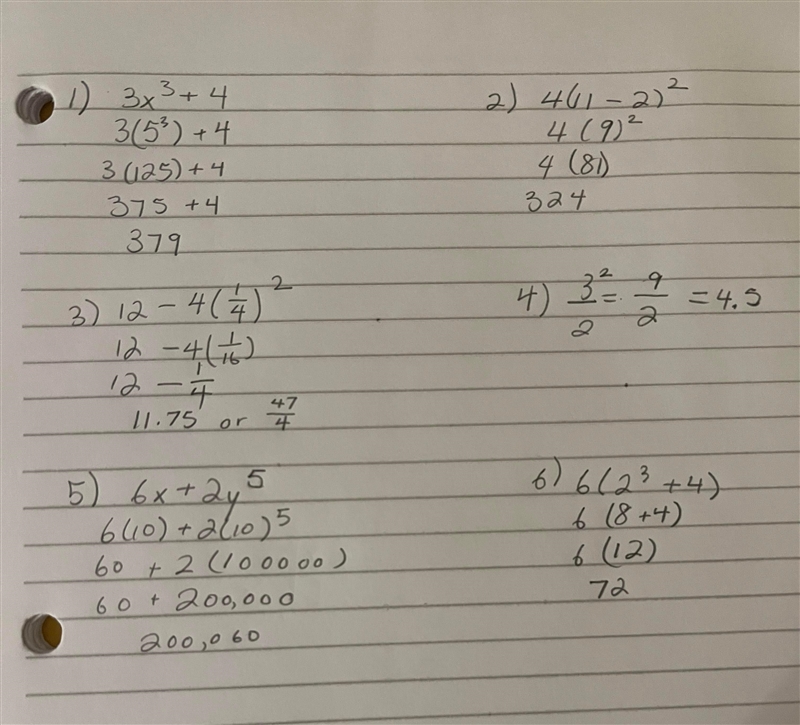 1) 3x³ + 4
3(5³) + 4
3(125) + 4
375 + 4
379
2) 4(11 - 2)²
4 (9)²
4 (81)
324
3) 12 - 4(1/4)²
12 - 4(1/16)
12 - 1/4
11.75 or 47/4
4) 3²/2 = 9/2 = 4.5
5) 6x + 2y⁵
6(10) + 2(10)⁵
60 + 2(100000)
60 + 200,000
200,060
6) 6(2³ + 4)
6 (8+4)
6 (12)
72